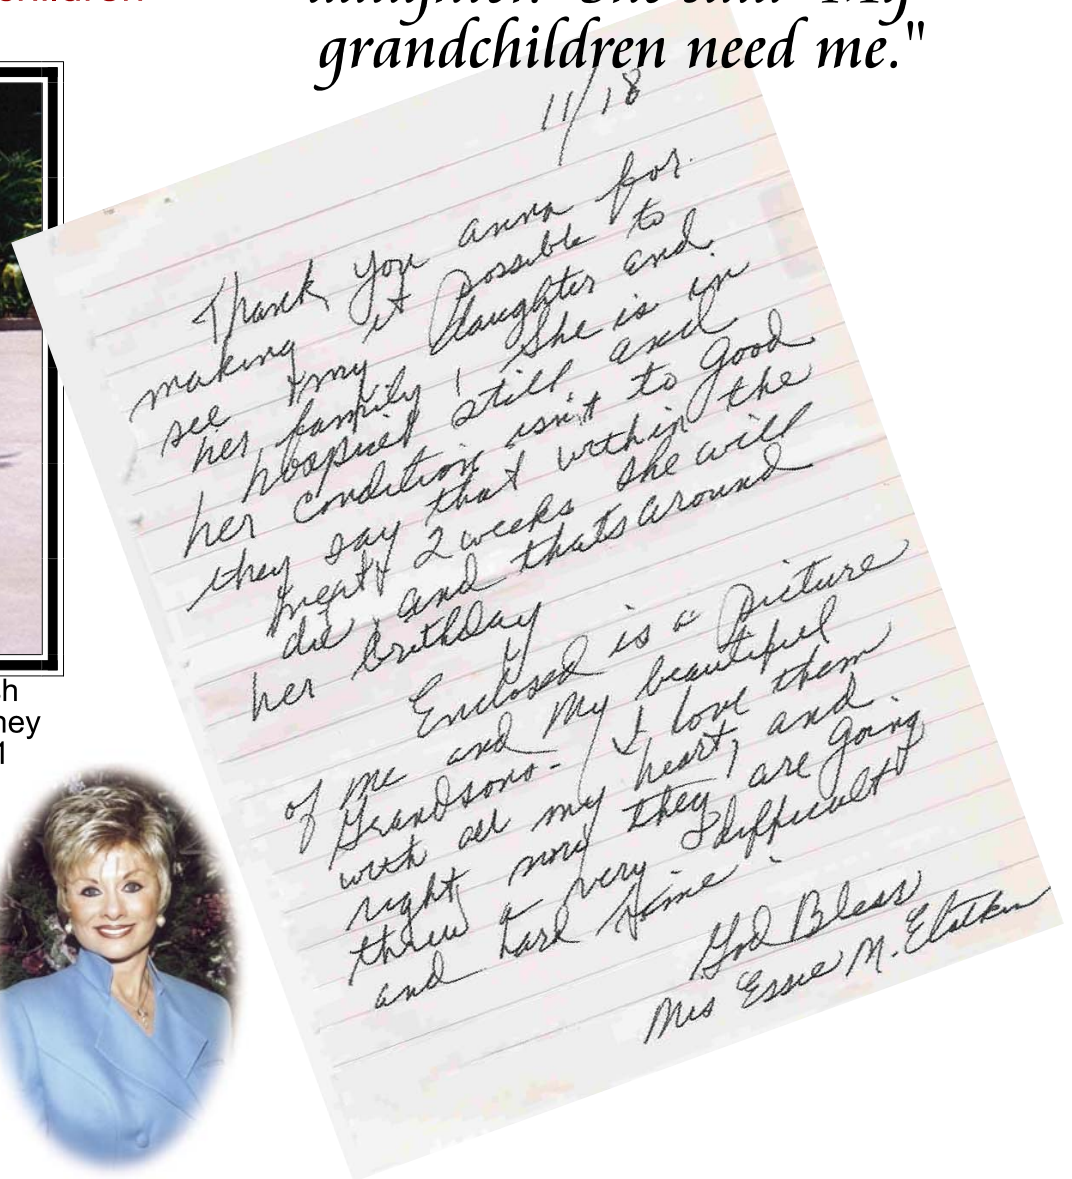 children
daughter. She said "My
grandchildren need me."
11/18
Thank you anna for
making it possible to
see my Daughter and
her family! She is in
hospital still and
her condition isn't to good
they say that within the
next 2 weeks she will
die, and thats around
her birthday
Enclosed is a picture
of me and My beautiful
Grandsons - I love them
with all my heart, and
right now they are going
threw a very difficult
and hard time.
God Bless
Mrs Essie M.
h
ney
1